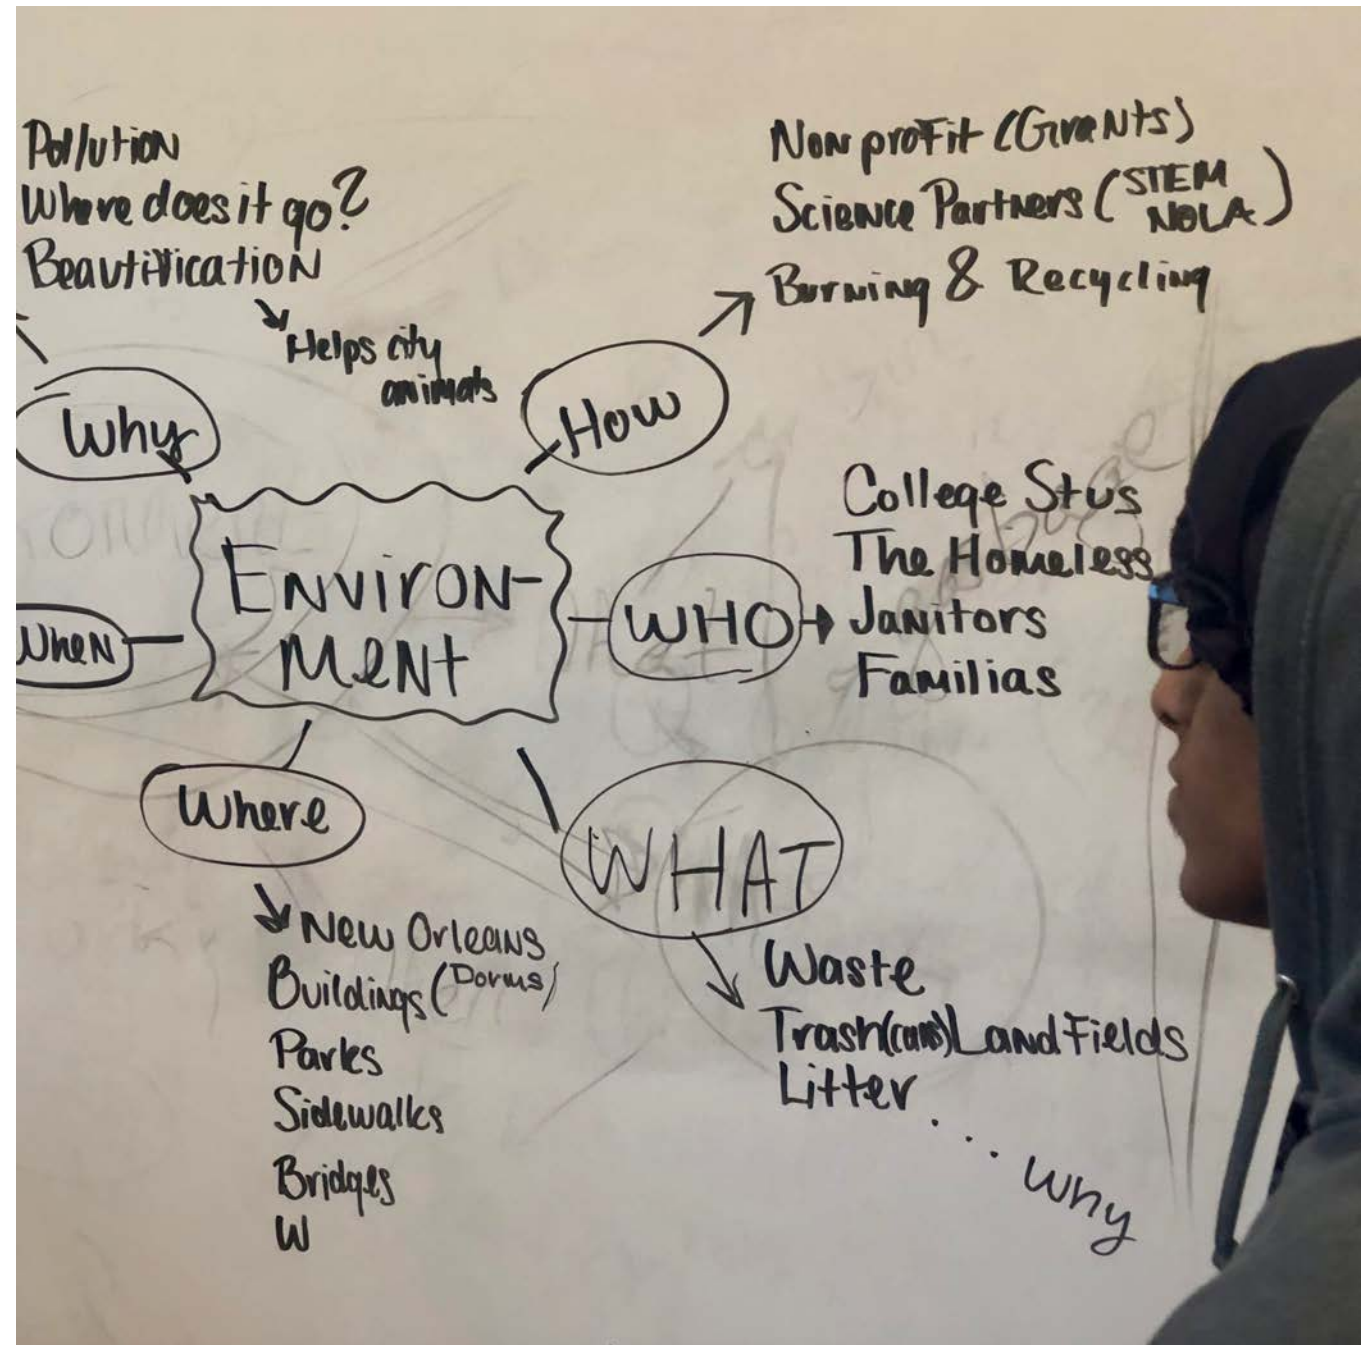 Pollution
Where does it go?
Beautification
Helps city
animals
Why
How
Nonprofit (Grants)
Science Partners (STEM
NOLA)
Burning & Recycling
ENVIRON-
MENT
When
WHO
College Stus
The Homeless
Janitors
Familias
Where
New Orleans
Buildings (Dorms)
Parks
Sidewalks
Bridges
W
WHAT
Waste
Trash(cans) Land Fields
Litter...
why